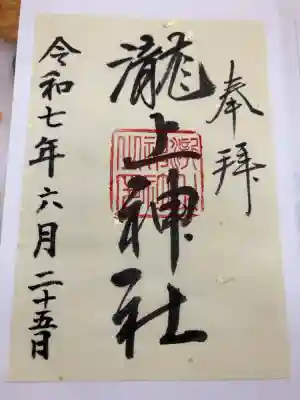 奉拝
瀧上神社
令和七年六月二十五日